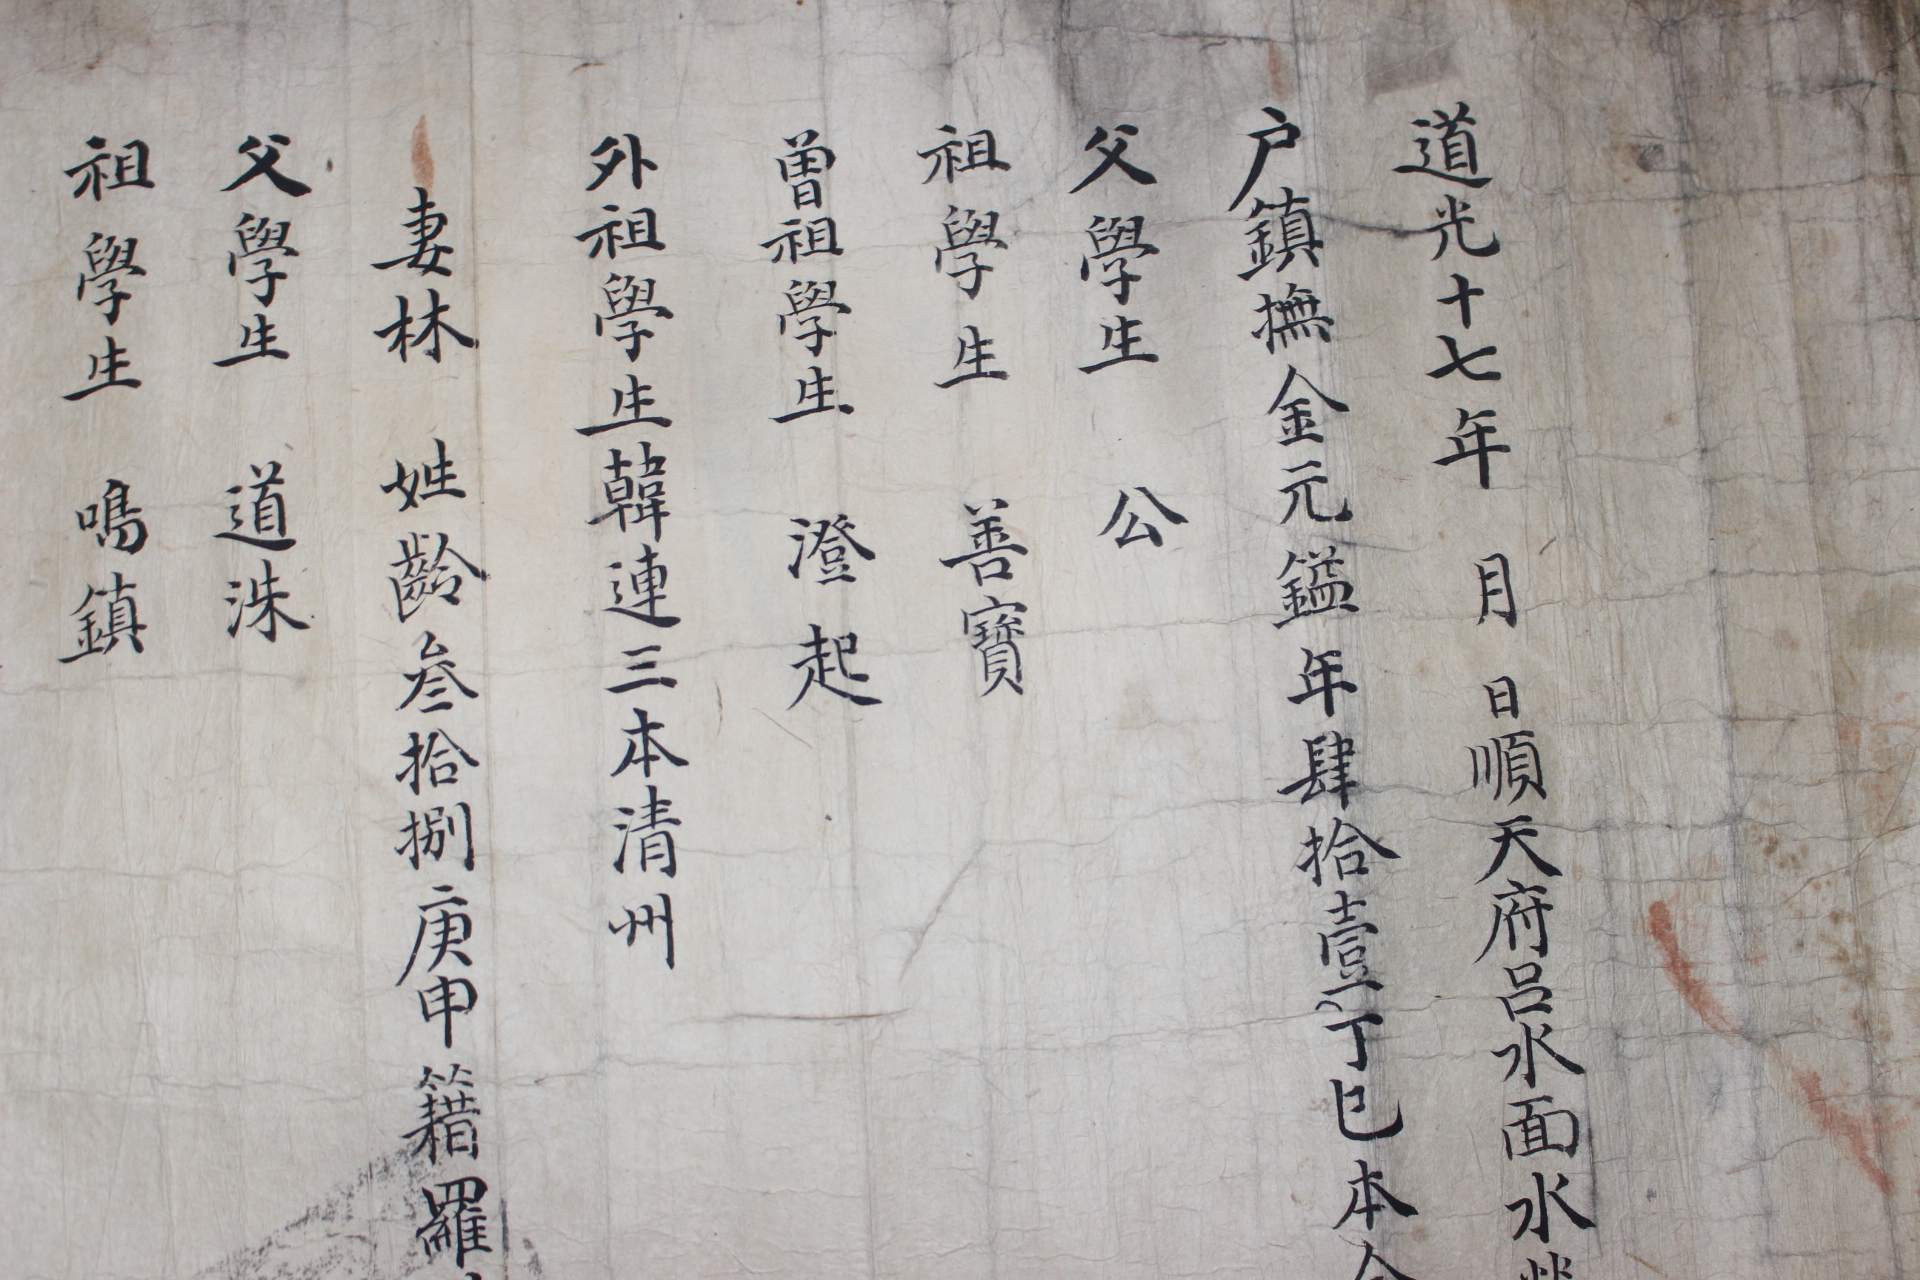 道光十七年 月 日順天府呂水面水
户鎮撫金元鎰年肆拾壹丁巳本金
父學生 公
祖學生 善寶
曽祖學生 澄起
外祖學生韓連三本清州
妻林 姓齡叁拾捌庚申籍羅
父學生 道洙
祖學生 鳴鎮